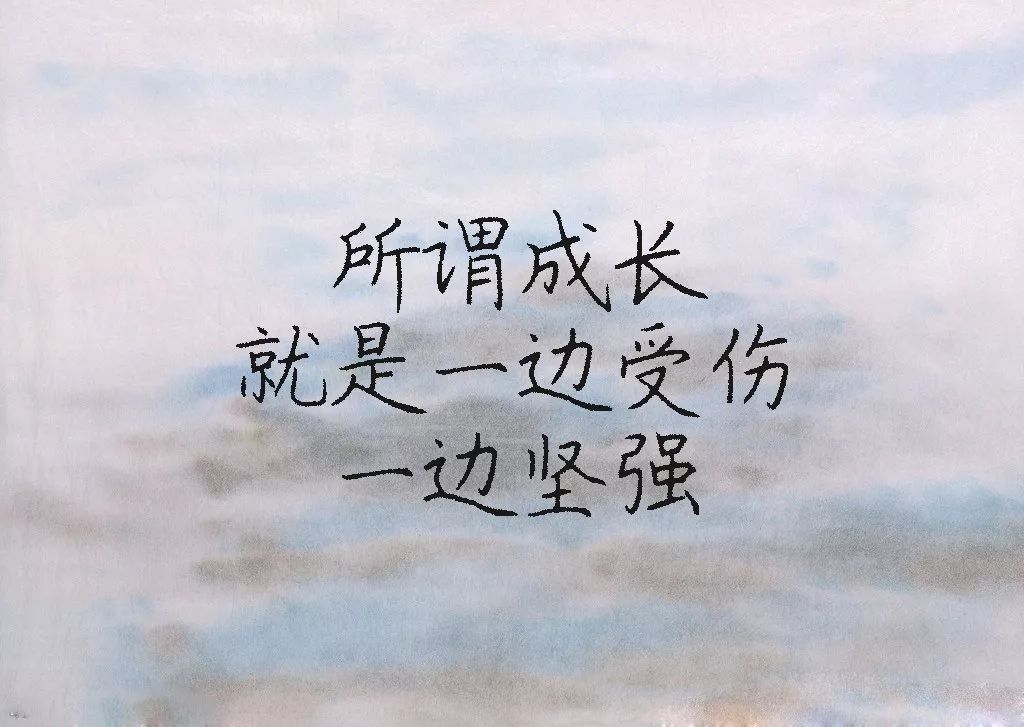 所谓成长
就是一边受伤
一边坚强